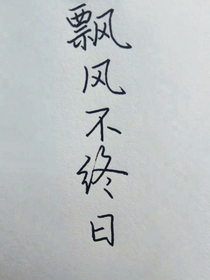 飘风不终日